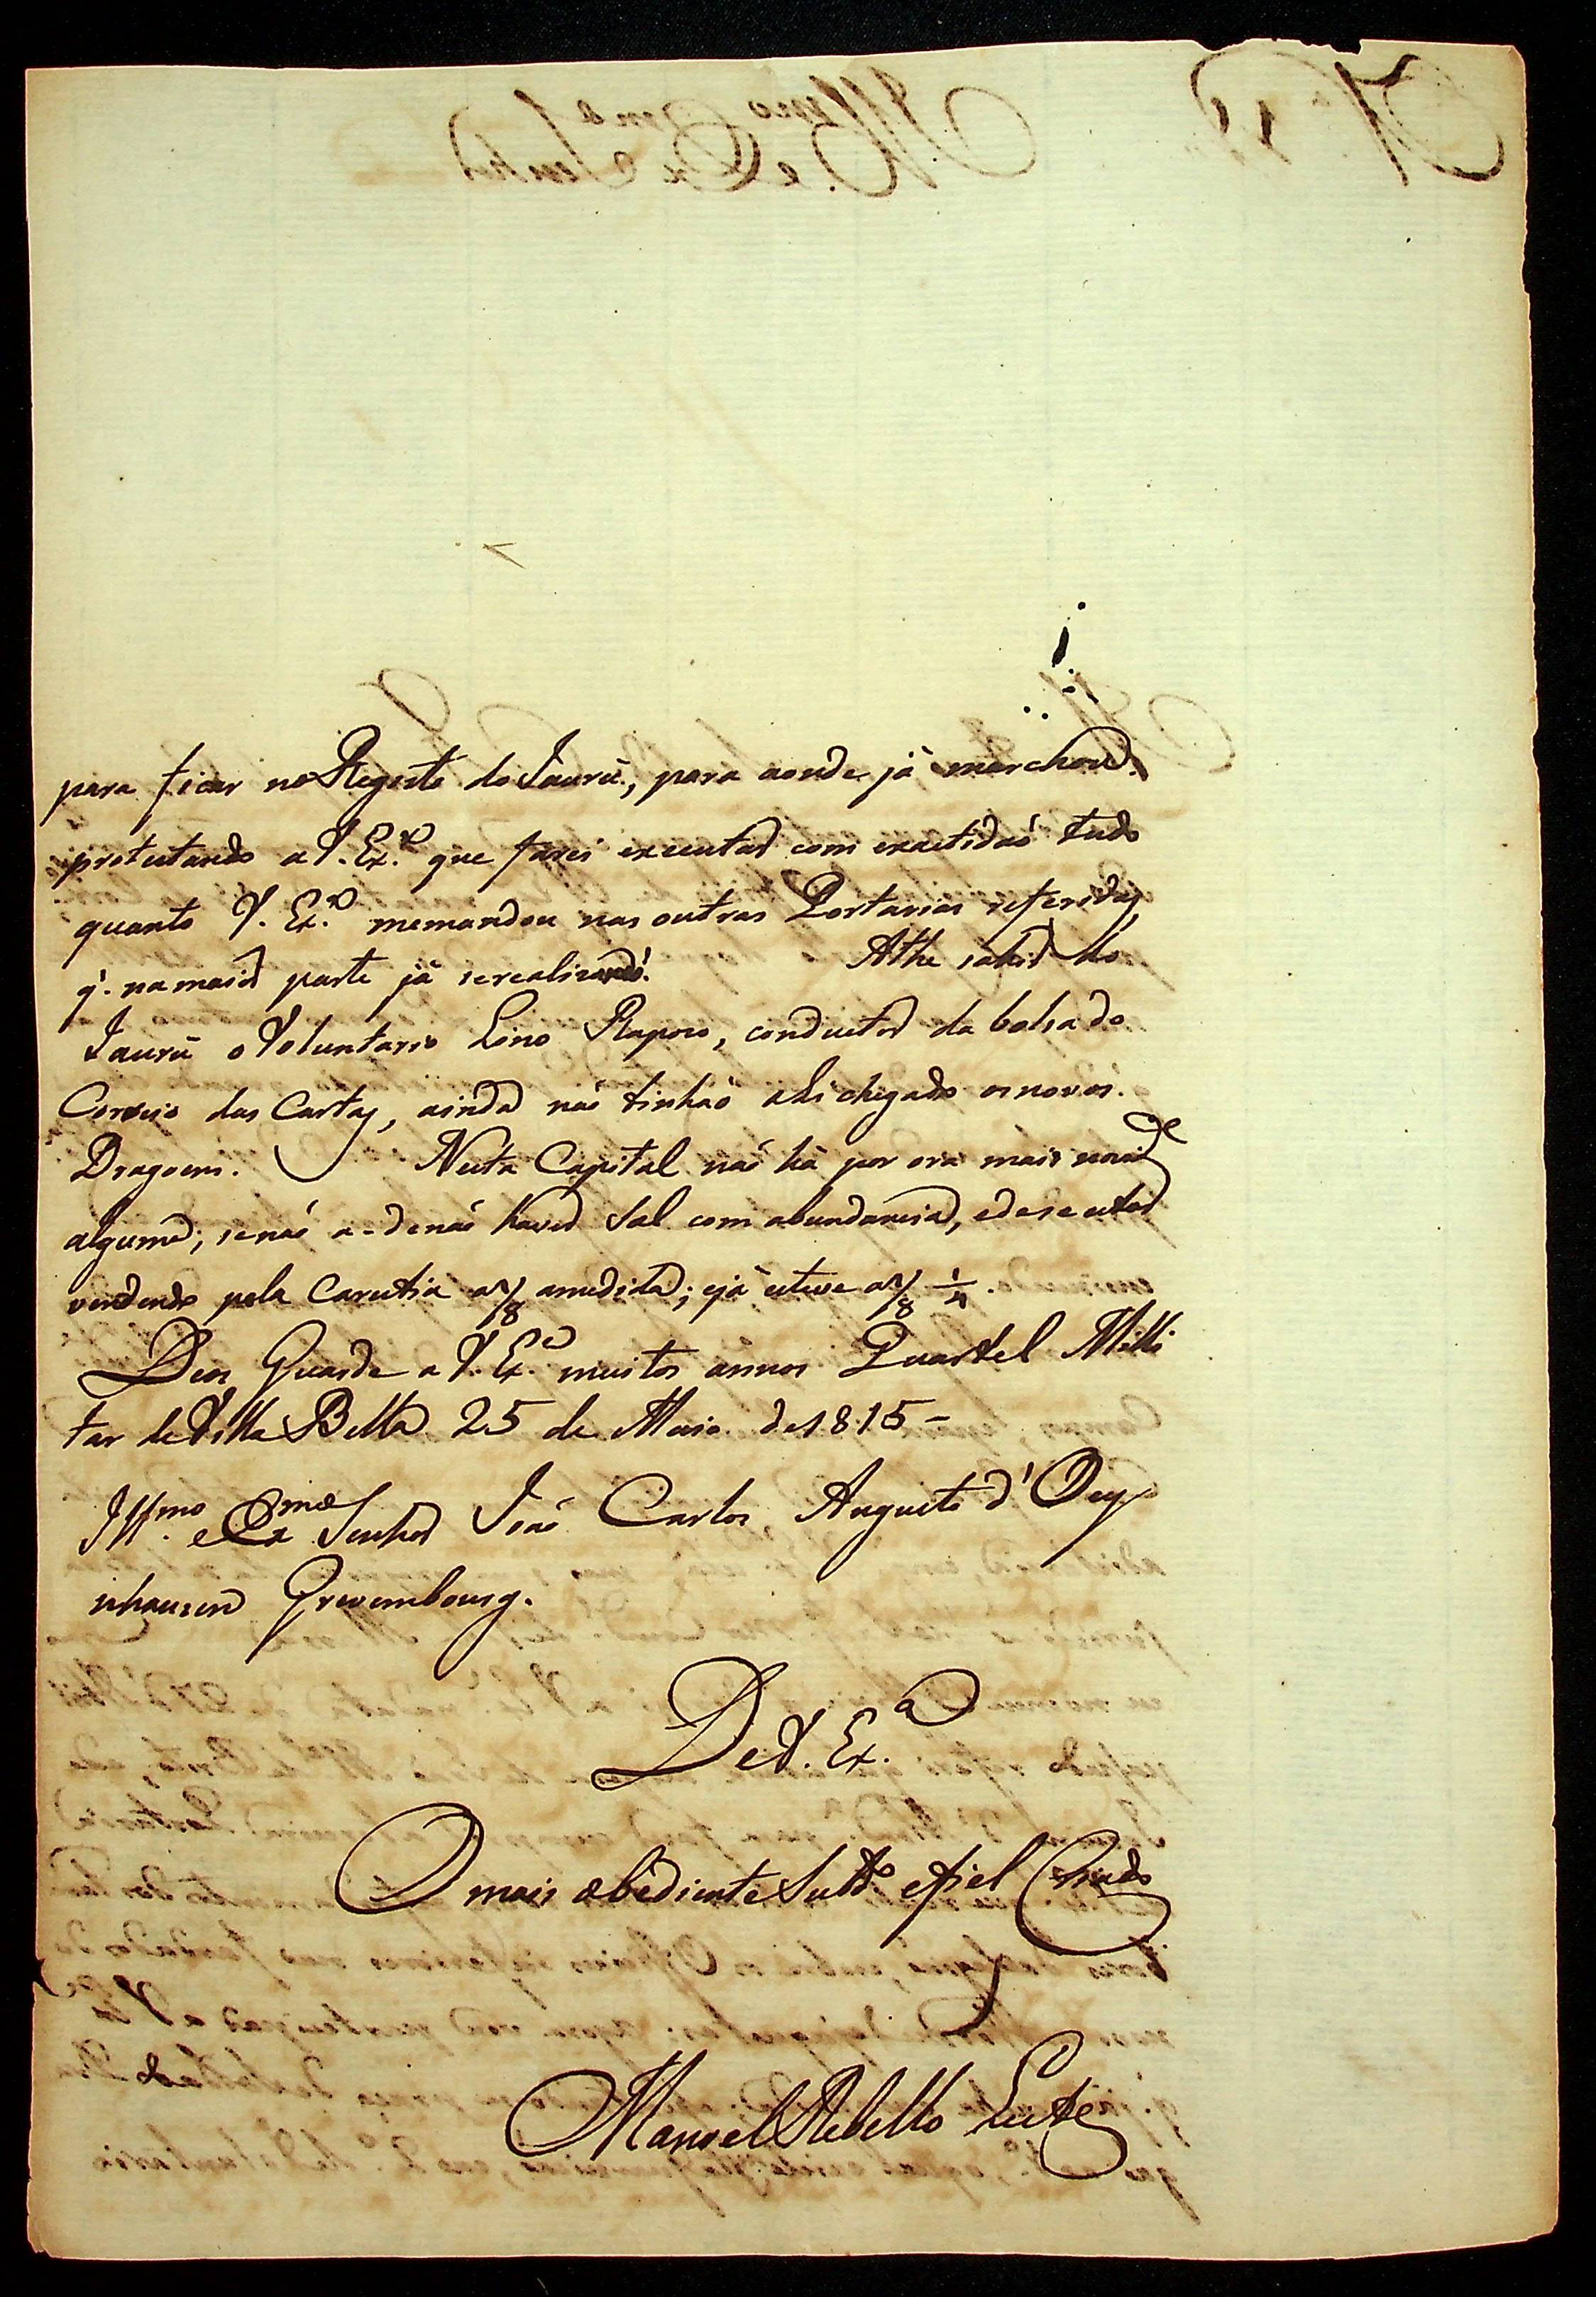 para ficar no Registo do Jaurú, para aonde já marchou.
protestando a V. Ex.ª que farei executar com exactidaõ tudo
quanto V. Ex.ª memandou nas outras Portarias referidas,
q'. namaior parte já serealizaraõ. Athe sahir do
Jaurú o Voluntario Lino Rapozo, conductor da bolsa do
Correio das Cartas, ainda naõ tinhaõ ali chegado osnovos
Dragoens. Nesta Capital naõ há por ora mais novid.de
alguma; senaõ a=denaõ haver Sal com abundancia, edese estar
vendendo pela Carestia a 7/8 amedida; ejá esteve a 7/8 1/4.
Deos Guarde a V. Ex.ª muitos annos Quartel Milli
tar de Villa Bella 25 de Maio de 1815 -
Ill.mo e Ex.mo Senhor Joaõ Carlos Augusto d'Oey
nhausen Grevembourg.
De V. Ex.ª
O mais obediente Subd.o efiel Criado
Manoel Rebello Leite